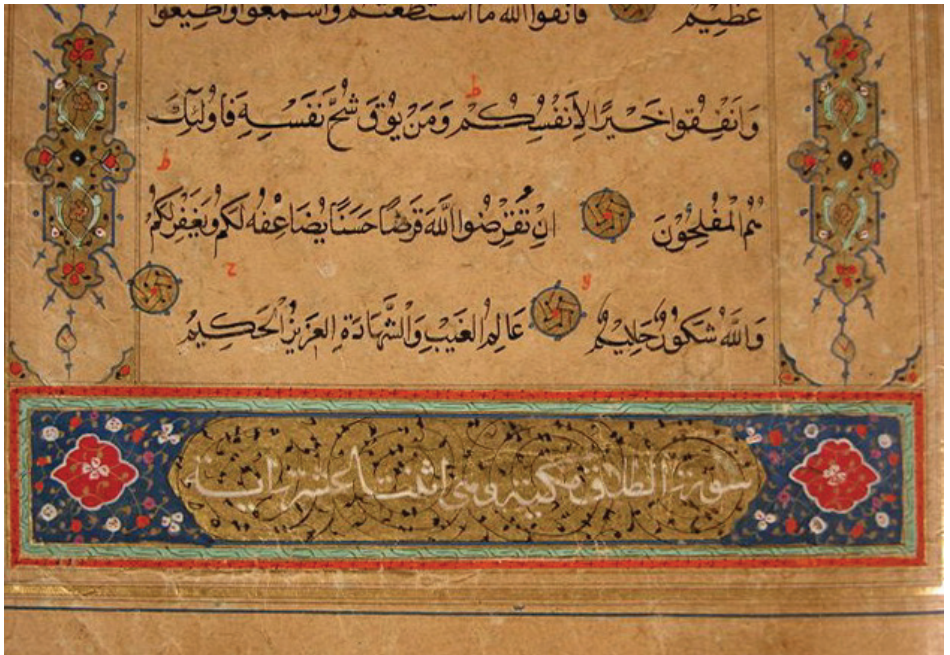 عظيم فاتقوا الله ما استطعتم واسمعوا واطيعوا
ط
وَاَنْفِقُوا خَيْرًا لِاَنْفُسِكُمْ وَمَنْ يُوقَ شُحَّ نَفْسِهِ فَاُولٰئِكَ
ط
هُمُ الْمُفْلِحُوْنَ اِنْ تُقْرِضُوا اللَّهَ قَرْضًا حَسَنًا يُضَاعِفْهُ لَكُمْ وَيَغْفِرْ لَكُمْ
وَاللَّهُ شَكُورٌ حَلِيمٌ عَالِمُ الْغَيْبِ وَالشَّهَادَةِ الْعَزِيزُ الْحَكِيمُ
سورة الطلاق مكية وهي اثنتا عشر اية